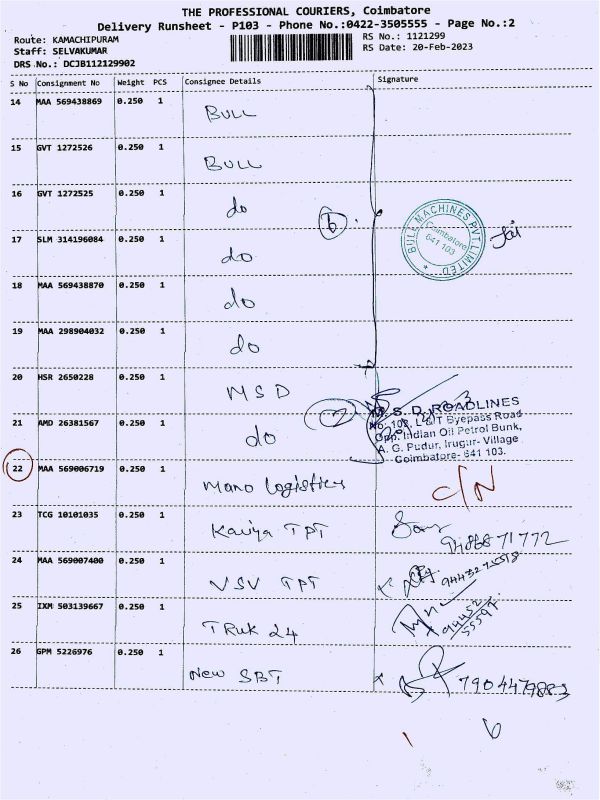 THE PROFESSIONAL COURIERS, Coimbatore
Delivery Runsheet - P103 - Phone No.:0422-3505555 - Page No.:2
Route: KAMACHIPURAM
RS No.: 1121299
Staff: SELVAKUMAR
RS Date: 20-Feb-2023
DRS No.: DCJB112129902
S No Consignment No Weight PCS Consignee Details Signature
14 MAA 569438869 0.250 1 BULL
15 GVT 1272526 0.250 1 BULL
16 GVT 1272525 0.250 1 do 6
17 SLM 314196084 0.250 1 do
BULL MACHINES PVT. LIMITED
Coimbatore
641 103
18 MAA 569438870 0.250 1 do
19 MAA 298904032 0.250 1 do
20 HSR 2650228 0.250 1 MSD
21 AMD 26381567 0.250 1 do
S. D. ROADLINES
No: 103, L&T Byepass Road
Opp. Indian Oil Petrol Bunk,
A. G. Pudur, Irugur- Village
Coimbatore- 641 103.
22 MAA 569006719 0.250 1 Mano logistics C/N
23 TCG 10101035 0.250 1 Kaviya TPT
24 MAA 569007400 0.250 1 VSV TPT
25 IXM 503139667 0.250 1 TRUK 24
26 GPM 5226976 0.250 1 New SBT 7904479883
6